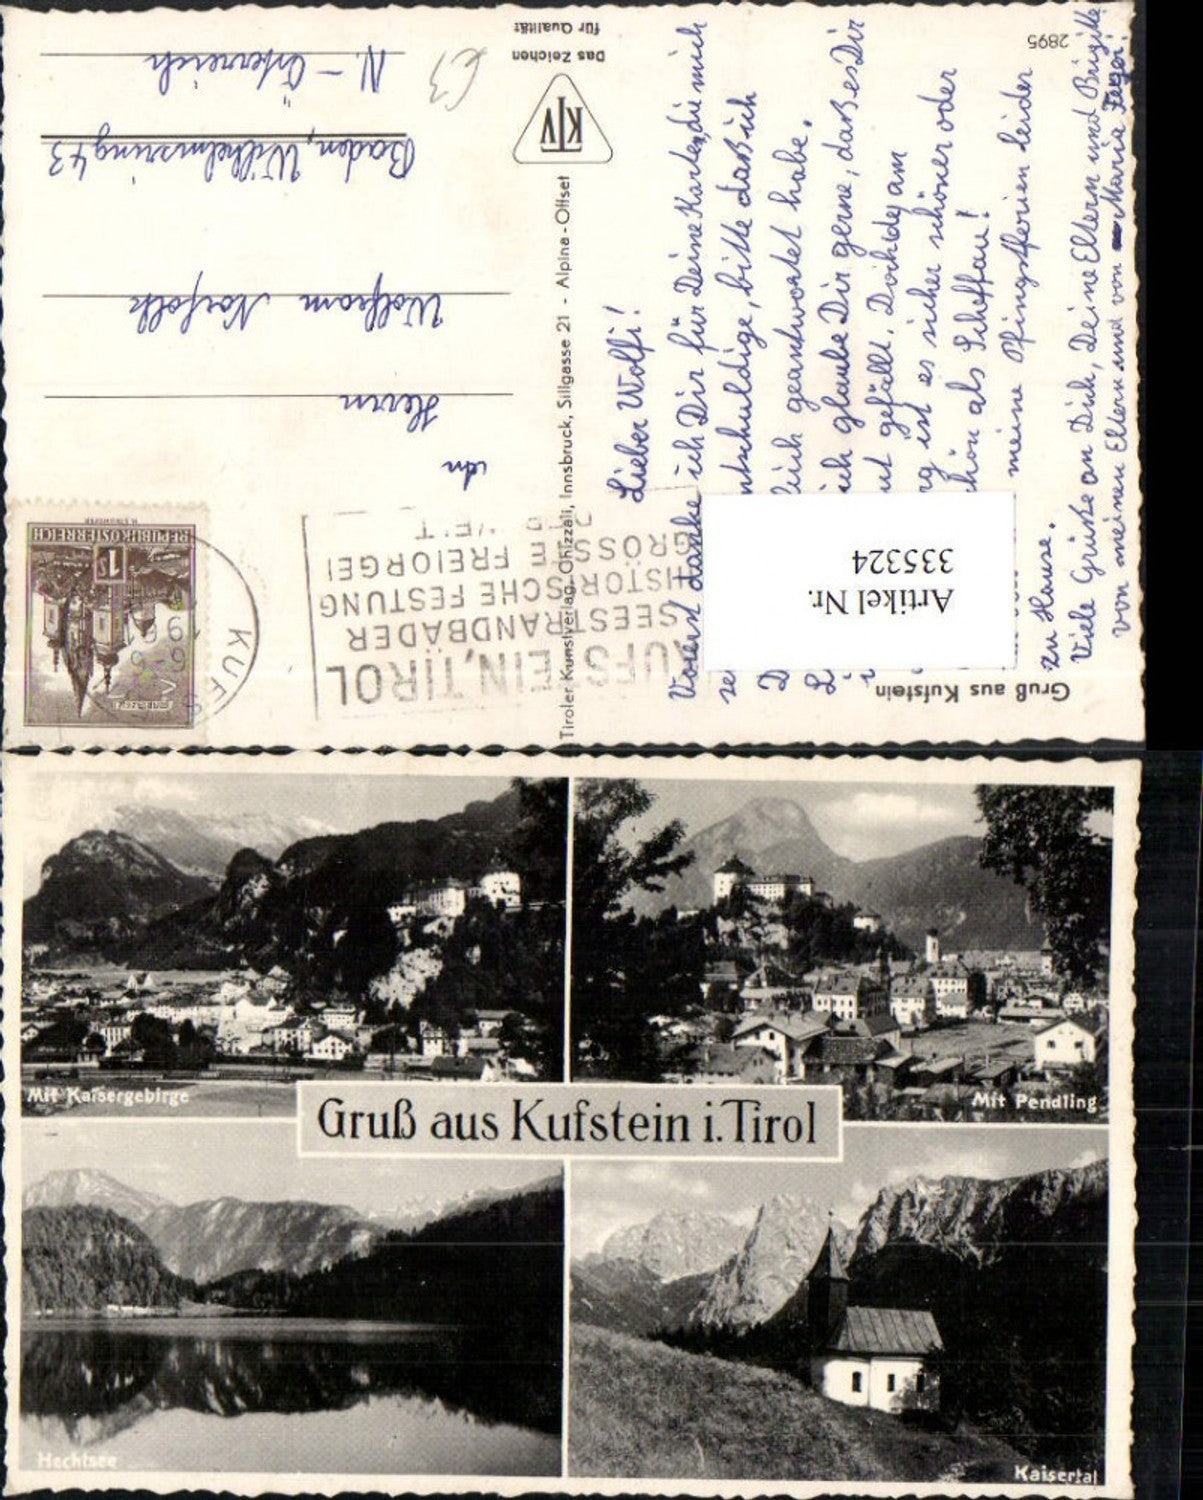 Das Zeichen
für Qualität
KTV
2895
Tiroler Kunstverlag Chizzali, Innsbruck, Sillgasse 21 - Alpina-Offset
Gruß aus Kufstein
REPUBLIK ÖSTERREICH
1 S
KUFS
KUFSTEIN, TIROL
SEESTRANDBÄDER
HISTORISCHE FESTUNG
GRÖSSTE FREIORGEL
DER WELT
An
Herrn
Wolfram Norfolk
Baden, Wilhelmsring 43
N.-Österreich
Lieber Wolfi!
Vorerst danke ich Dir für Deine Karte, die mich
ntschuldige, bitte daß ich
geantwortet habe.
ich glaube Dir gerne, daß es Dir
ut gefällt. Doch
am
rg ist es sicher schöner oder
chön als Scheffau!
meine Pfingstferien leider
zu Hause.
Viele Grüße an Dich, Deine Eltern und Brigitte
von meinen Eltern und von Maria
Artikel Nr.
335324
Mit Kaisergebirge
Mit Pendling
Gruß aus Kufstein i. Tirol
Hechtsee
Kaisertal